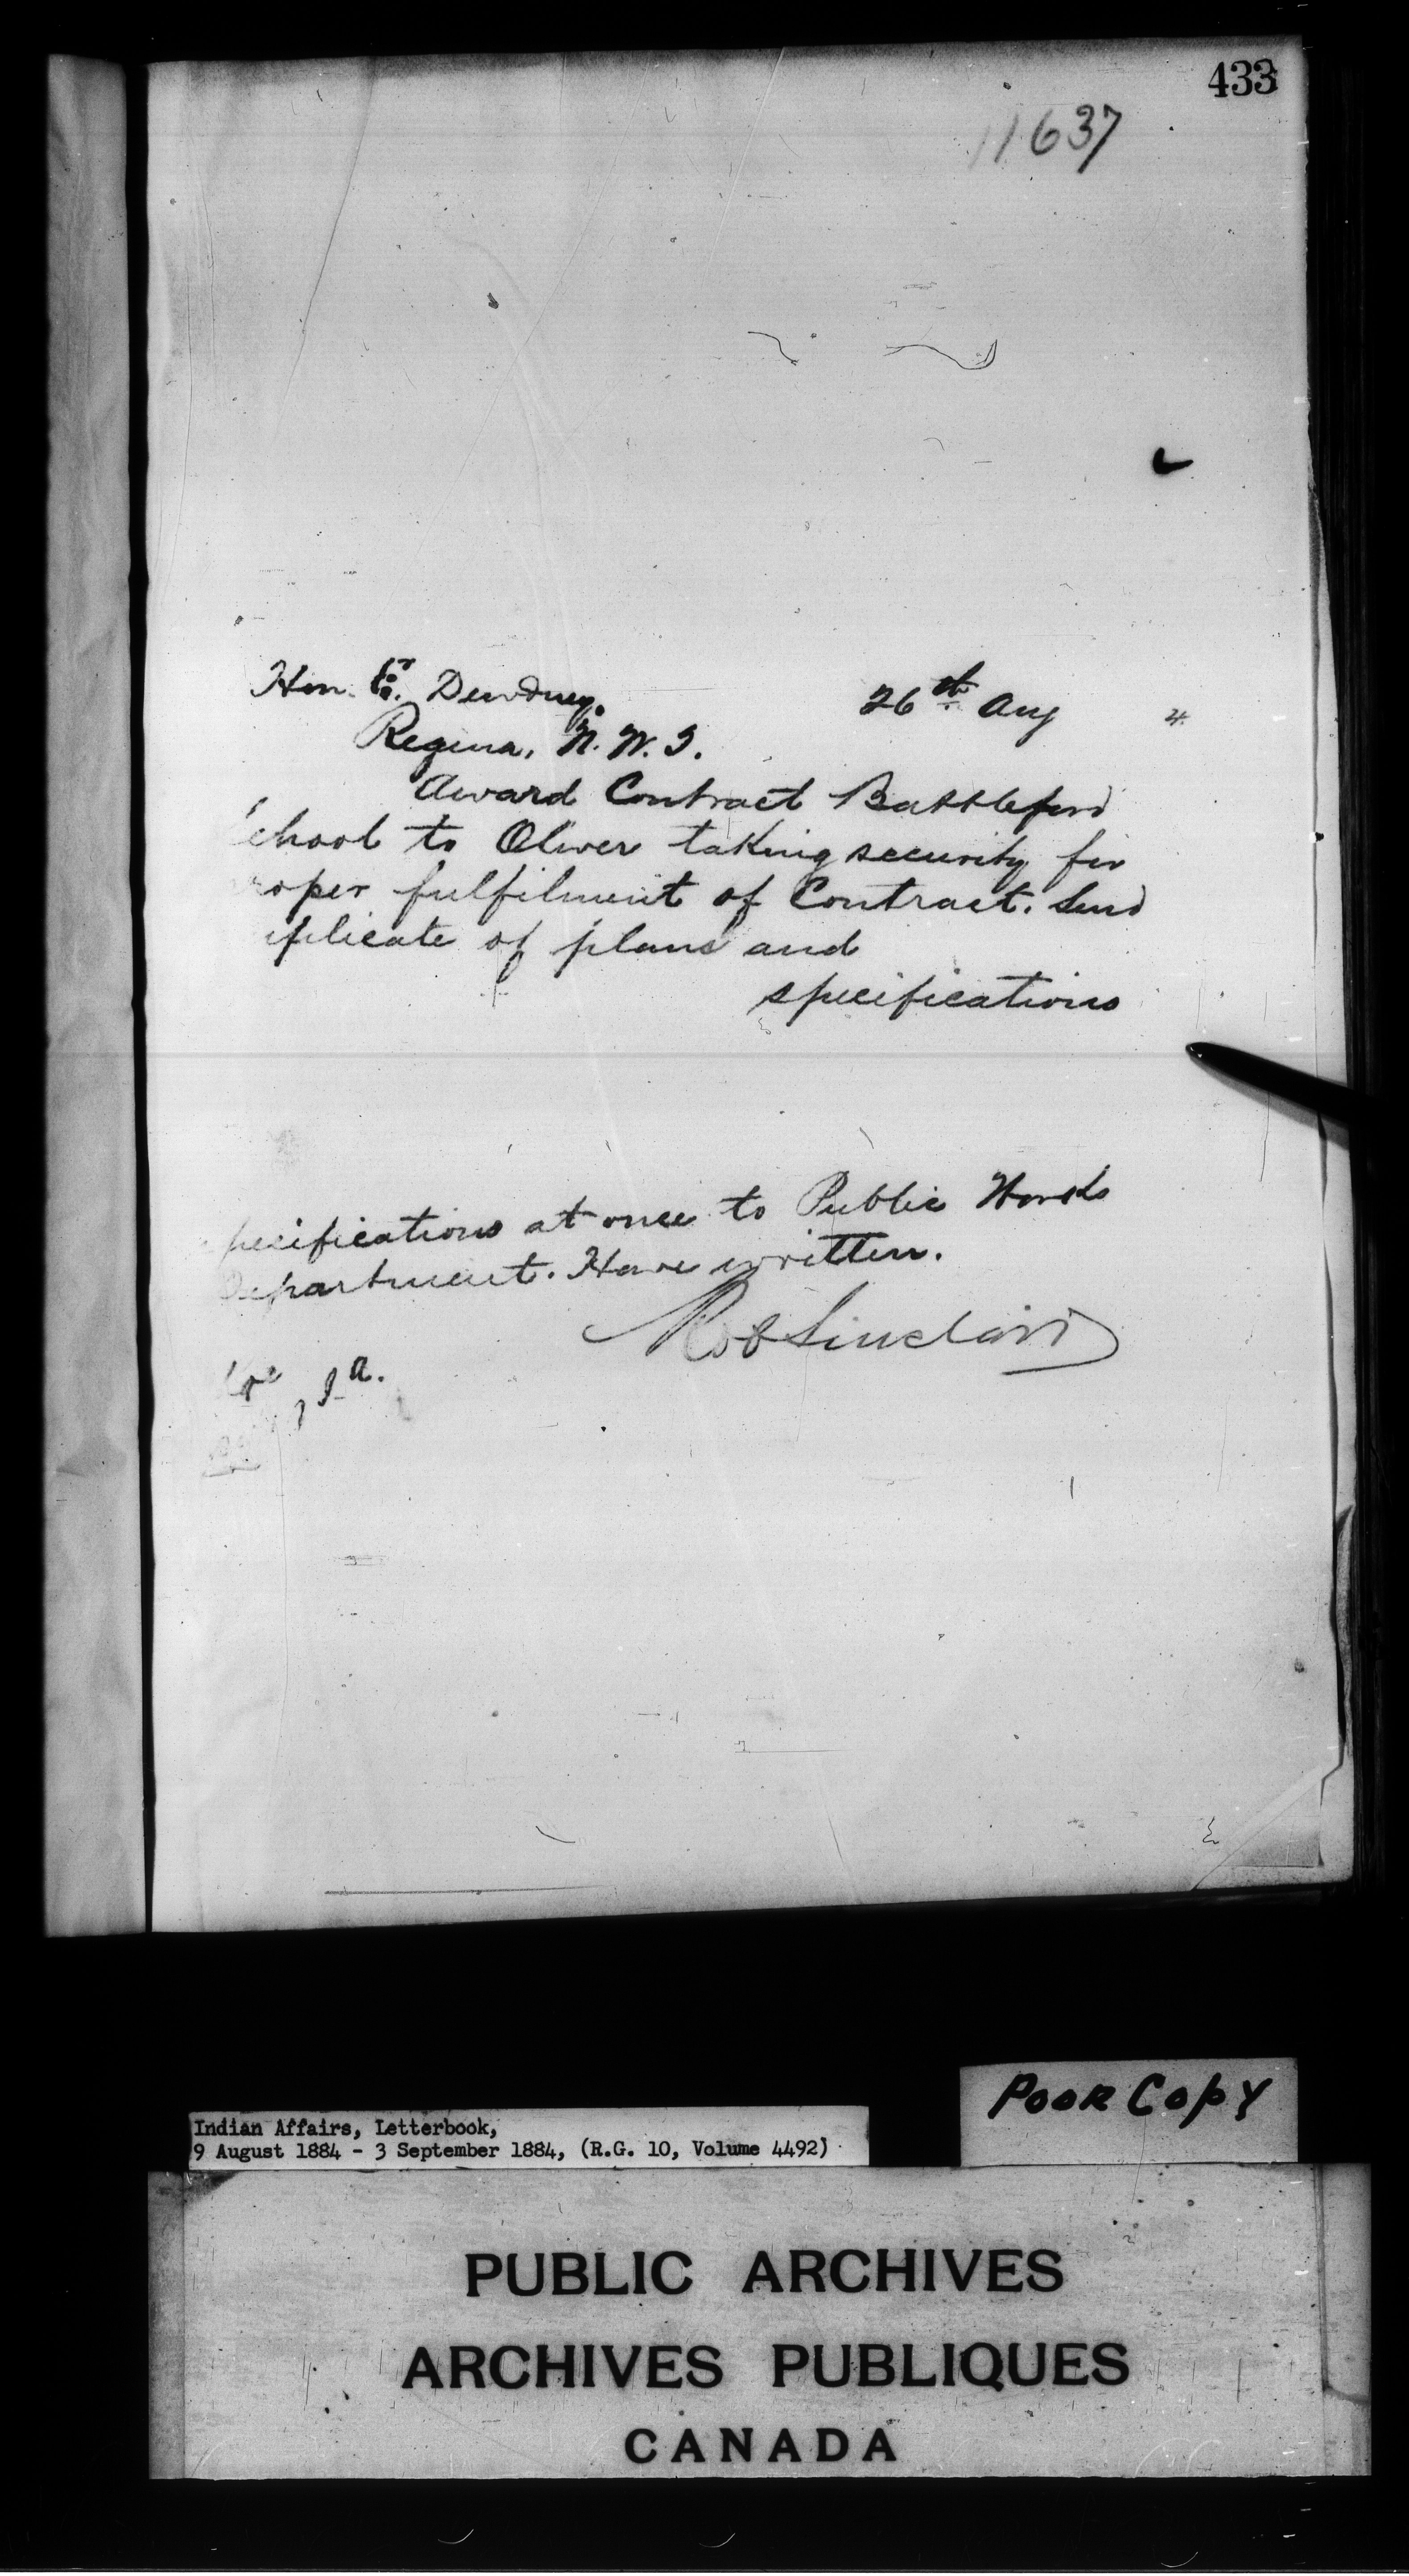 433
11637
Hon. E. Dewdney. 26th Aug 4
Regina, N.W.T.
Award Contract Battleford
School to Oliver taking security for
roper fulfilment of Contract. Send
uplicate of plans and
specifications
pecifications at once to Public Works
Department. Have written.
Rob Sinclair
I. A.
Indian Affairs, Letterbook,
9 August 1884 - 3 September 1884, (R.G. 10, Volume 4492)
POOR COPY
PUBLIC ARCHIVES
ARCHIVES PUBLIQUES
CANADA